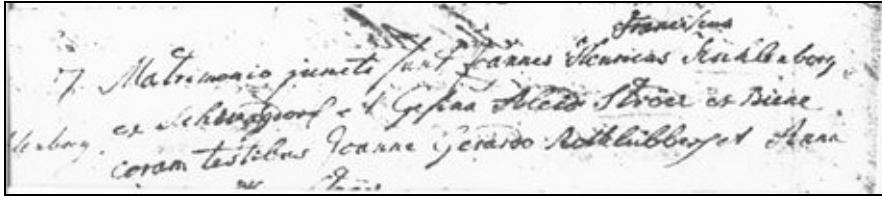 Franciscus
7. Matrimonio juncti sunt Joannes Henricus
ex et Gesina Aleid Ströer ex Biene
coram testibus Joanne Gerardo Rotklübbers et Anna